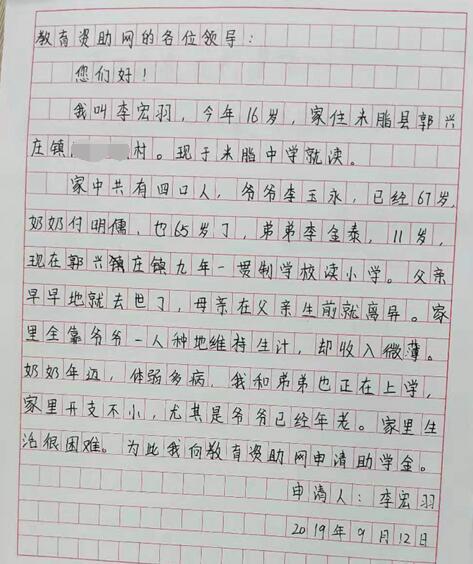 教育资助网的各位领导：
您们好！
我叫李宏羽，今年16岁，家住米脂县郭兴
庄镇村。现于米脂中学就读。
家中共有四口人，爷爷李玉永，已经67岁，
奶奶付明儒，也65岁了，弟弟李金泰，11岁，
现在郭兴庄镇九年一贯制学校读小学。父亲
早早地就去世了，母亲在父亲生前就离异。家
里全靠爷爷一人种地维持生计，却收入微薄。
奶奶年迈，体弱多病，我和弟弟也正在上学，
家里开支不小，尤其是爷爷已经年老。家里生
活很困难。为此我向教育资助网申请助学金。
申请人：李宏羽
2019年9月12日